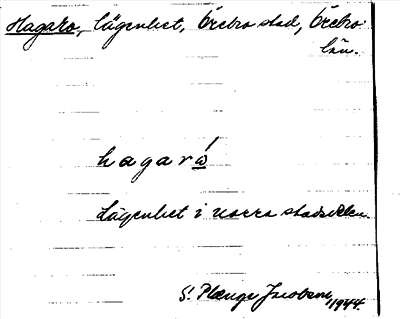 Hagaro, lägenhet, Örebro stad, Örebro
län.
hagaró
Lägenhet i norra stadsdelen.
S. Plenge Jacobsen, 1944.